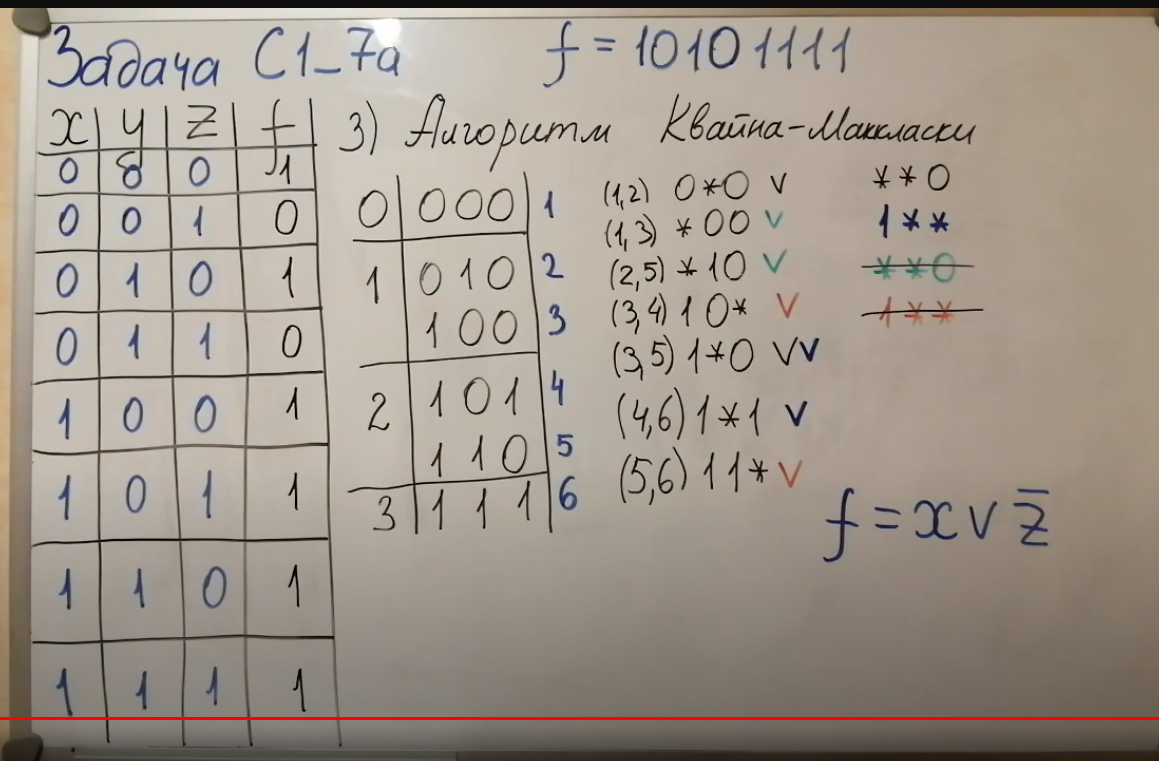 Задача C1_7a f = 10101111
x y z f
0 0 0 1
0 0 1 0
0 1 0 1
0 1 1 0
1 0 0 1
1 0 1 1
1 1 0 1
1 1 1 1
3) Алгоритм Квайна-Маккласки
0 000 1
1 010 2
100 3
2 101 4
110 5
3 111 6
(1,2) 0*0 v
(1,3) *00 v
(2,5) *10 v
(3,4) 10* v
(3,5) 1*0 vv
(4,6) 1*1 v
(5,6) 11* v
**0
1**
**0
1**
f = x v z̅